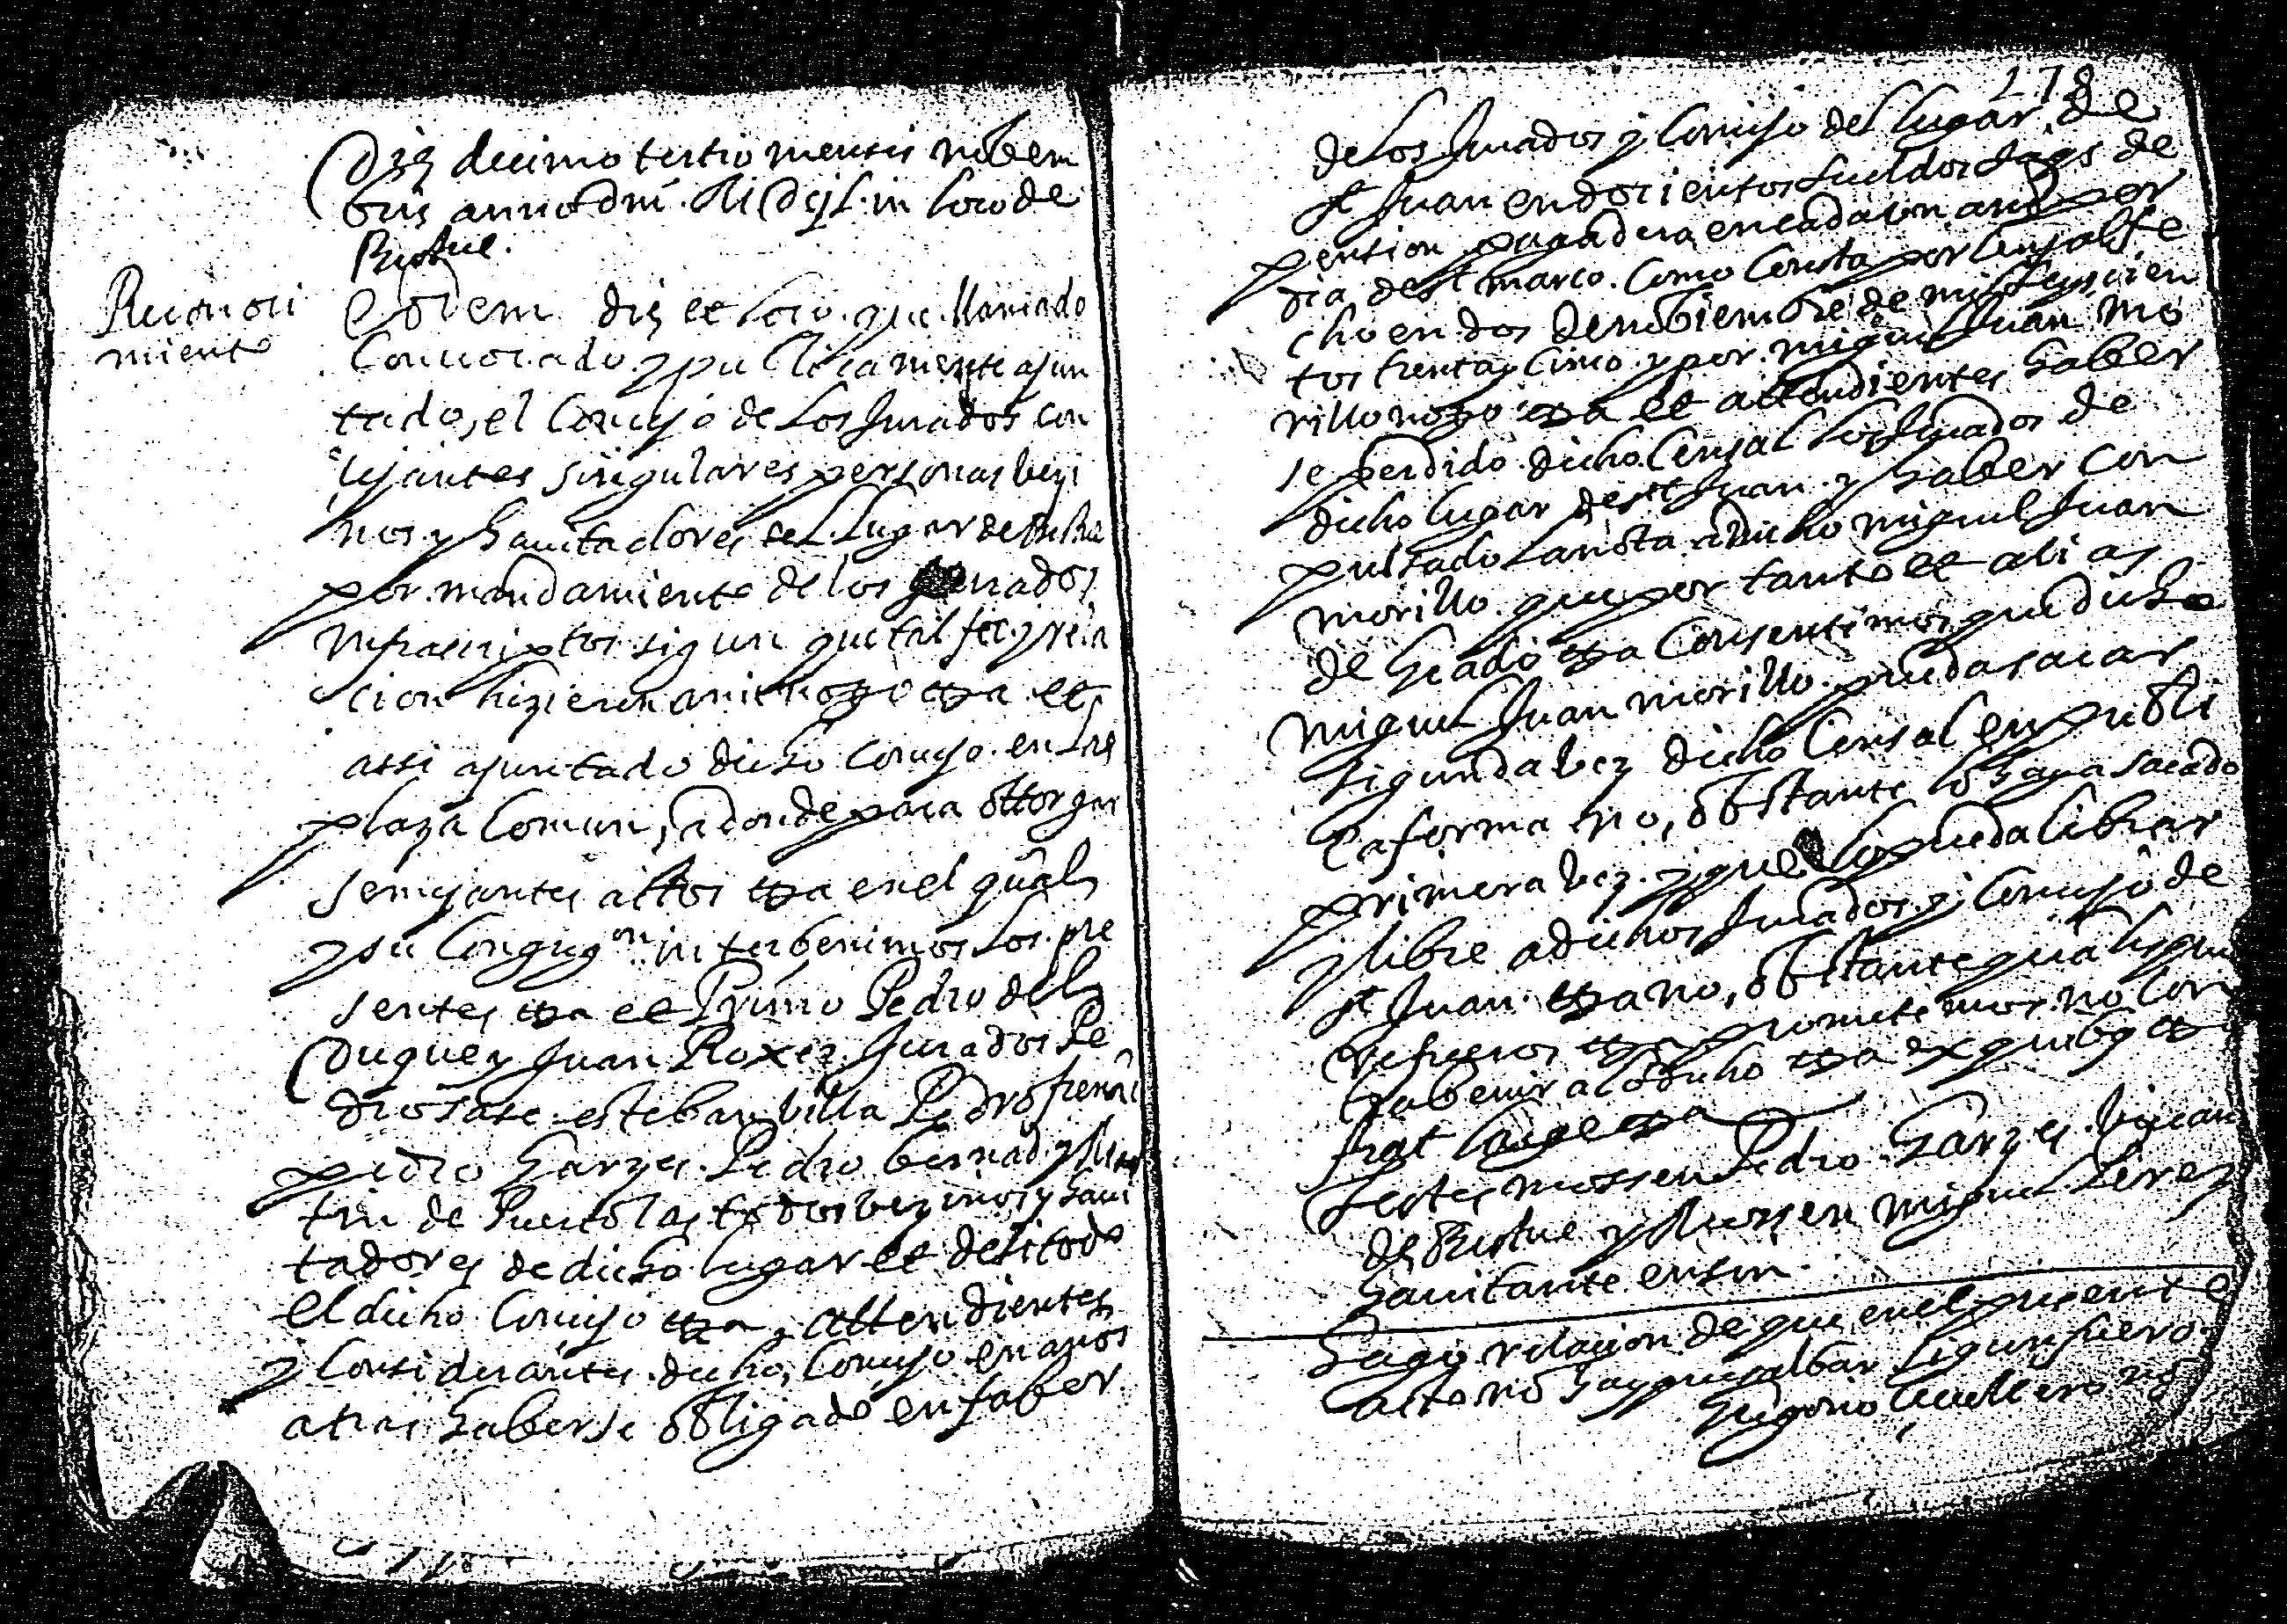 Die decimo tertio mensis nobem
bris anno dni. MDCXL. in loco de
Bestue.
Reconoci
miento
Eodem die et loco. que llamado
Conuocado y publicamente ajun
tado, el Concejo de los Jurados con
cejantes singulares personas vezi
nos y hauitadores del lugar de Bestue
por mandamiento de los Jurados
infrascriptos sigun que tal fee y rela
cion hizieron a mi noto etta et
assi ajuntado dicho Concejo en la
plaza Comun, adonde para ottorgar
semejantes actos etta en el qual
y su Congregon interbenimos los pre
sentes etta et Primo Pedro del
Duque y Juan Roxer Jurados Pe
dro sase esteban billa Pedro
pedro Garzes. Pedro bernad y Mar
tin de Puertolas todos vezinos y haui
tadores de dicho lugar et de si todo
el dicho Concejo etta, attendientes
y Considerantes. dicho, Concejo en años
atras haberse obligado en fabor
278
de los Jurados y Concejo del lugar de
st Juan en docientos sueldos Jaqs de
pension pagadera en cada un año por
dia de st marco. Como Consta por Censal fe
cho en dos de nobiembre de mil seyscien
tos trenta y Cinco y por miguel Juan mo
rillo noto etta et attendientes haber
se perdido dicho Censal los Jurados de
dicho lugar de st Juan. y haber con
pulsado la nota a dicho miguel Juan
morillo. que por tanto et alias
de grado etta Consentimos que dicho
miguel Juan morillo. pueda sacar
sigunda bez dicho Censal en publi
ca forma no, obstante lo haya sacado
primera bez. y que lo pueda librar
y libre a dichos Jurados y Concejo de
st Juan. etta no, obstante qualesquie
re fueros etta prometemos no con
trabenir a lo dicho etta ex quibus etta
fiat large etta
Testes mossen Pedro Garzes. bicario
de Bestue y Mossen miguel Perez
hauitante en sin.
Hago relacion de que en el presente
acto no hay que salbar sigun fuero.
Gregorio no